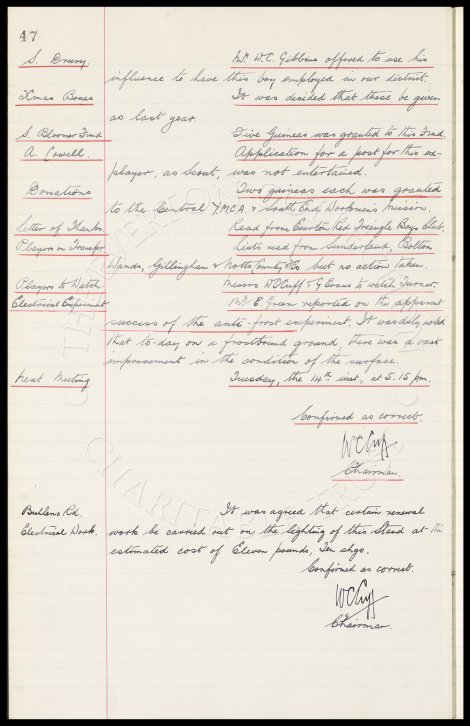 47
S. Drury. Mr. W.C. Gibbins offered to use his
influence to have this boy employed in our district.
Xmas Boxes It was decided that these be given
as last year.
S. Bloomer Fund Five Guineas was granted to this Fund.
A. Lowell. Application for a post for this ex-
player, as Scout, was not entertained.
Donations Two guineas each was granted
to the Central YMCA & South End Workmens Mission.
Letter of Thanks Read from Everton Red Triangle Boys Club.
Players on Transfer Lists read from Sunderland, Bolton
Wands, Gillingham & Notts County FCs but no action taken.
Players to Watch Messrs WCCuff & G Evans to watch Turner.
Electrical Experiment Mr. E. Green reported on the apparent
success of the anti-frost experiment. It was duly noted
that to-day on a frostbound ground, there was a vast
improvement in the condition of the surface.
Next Meeting Tuesday, the 14th inst., at 5.15 pm.
Confirmed as correct.
WCCuff
Chairman.
Bullens Rd. It was agreed that certain renewal
Electrical Work. work be carried out on the lighting of this Stand at the
estimated cost of Eleven pounds, Ten shgs.
Confirmed as correct.
WCCuff
Chairman.
EVERTON
CHARITABLE TRUST